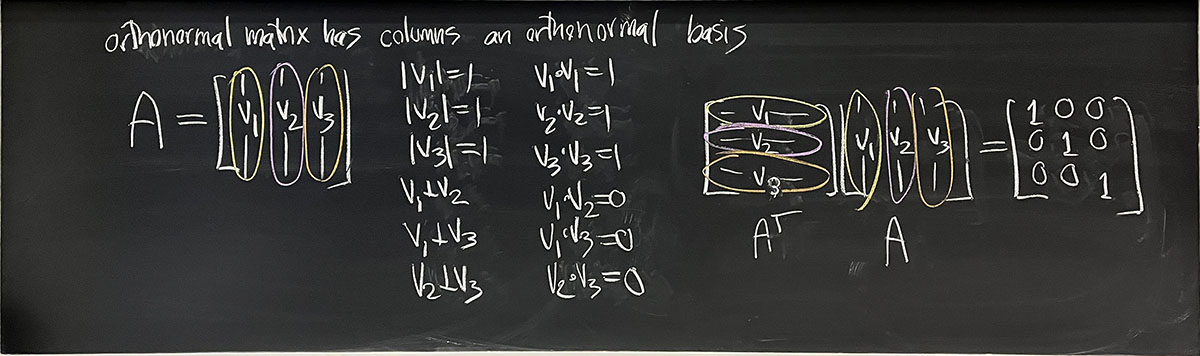 orthonormal matrix has columns an orthonormal basis
A = [ v₁ v₂ v₃ ]
|v₁|=1 v₁·v₁=1
|v₂|=1 v₂·v₂=1
|v₃|=1 v₃·v₃=1
v₁⊥v₂ v₁·v₂=0
v₁⊥v₃ v₁·v₃=0
v₂⊥v₃ v₂·v₃=0
[ – v₁ – ] [ v₁ v₂ v₃ ] = [ 1 0 0 ]
– v₂ – 0 1 0
– v₃ – 0 0 1
Aᵀ A